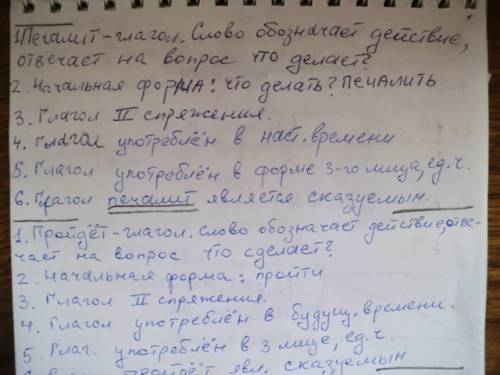 1.Печалит-глагол. Слово обозначает действие,
отвечает на вопрос что делает?
2. Начальная форма: что делать? ПечАлить
3. Глагол II спряжения.
4. Глагол употреблён в наст. времени
5. Глагол употреблён в форме 3-го лица, ед. ч.
6. Глагол печалит является сказуемым.
1. Пройдёт-глагол. Слово обозначает действие, отве-
чает на вопрос что сделает?
2. Начальная форма: пройти
3. Глагол II спряжения.
4. Глагол употреблён в будущ. времени.
5. Глаг. употреблён в 3 лице, ед. ч.
6. пройдёт явл. сказуемым